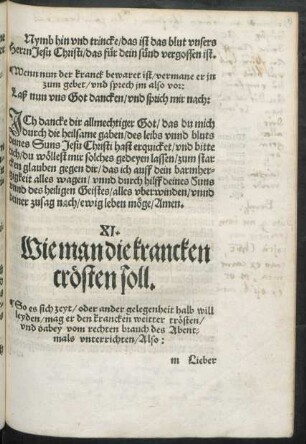 Nymb hin vnd trincke/das ist das blut vnsers
Herrn Jesu Christi/das für dein sünd vergossen ist.
Wenn nun der kranck bewaret ist/vermane er jn
zum gebet/vnd sprech jm also vor:
Laß nun vns Got dancken/vnd sprich mir nach:
Ich dancke dir allmechtiger Got/das du mich
durch die heilsame gaben/des leibs vnnd bluts
deines Suns Jesu Christi hast erquicket/vnd bitte
dich/du wöllest mir solches gedeyen lassen/zum star
cken glauben gegen dir/das ich auff dein barmher=
tzigkeit alles wagen/vnnd durch hilff deines Suns
vnnd des heiligen Geistes/alles vberwinden/vnnd
deiner zusag nach/ewig leben möge/Amen.
XI.
Wie man die krancken
trösten soll.
So es sich zeyt/oder ander gelegenheit halb will
leyden/mag er den krancken weitter trösten/
vnd dabey vom rechten brauch des Abent=
mals vnterrichten/Also:
m Lieber